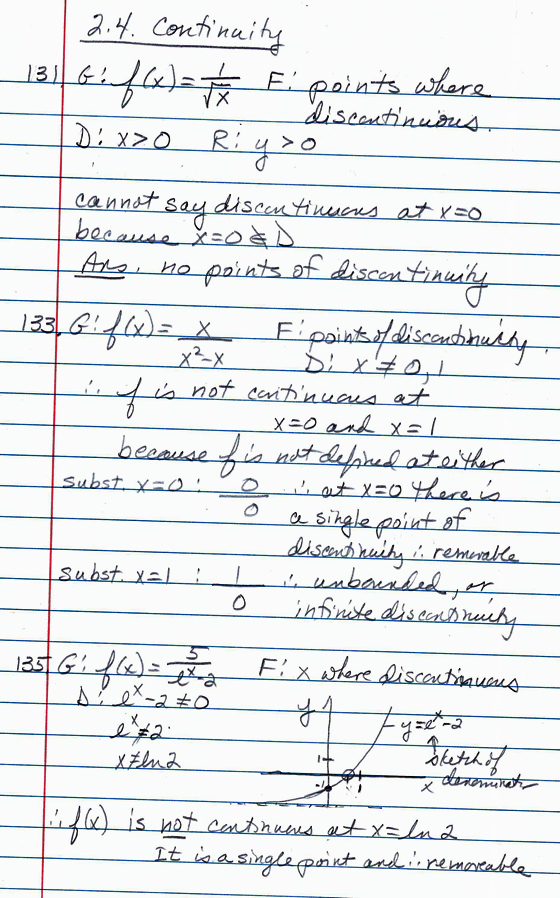 2.4. Continuity
131. G: f(x) = 1/√x F: points where
discontinuous.
D: x>0 R: y>0
cannot say discontinuous at x=0
because x=0 ∉ D
Ans. no points of discontinuity
133. G: f(x) = x/(x²-x) F: points of discontinuity.
D: x ≠ 0, 1
∴ f is not continuous at
x=0 and x=1
because f is not defined at either
subst. x=0 : 0/0 ∴ at x=0 there is
a single point of
discontinuity ∴ removable
subst. x=1 : 1/0 ∴ unbounded, or
infinite discontinuity
135. G: f(x) = 5/(eˣ-2) F: x where discontinuous
D: eˣ-2 ≠ 0
y
y=eˣ-2
eˣ ≠ 2
x ≠ ln 2
sketch of
x denominator
1
1
-1
∴ f(x) is not continuous at x = ln 2
It is a single point and ∴ removeable